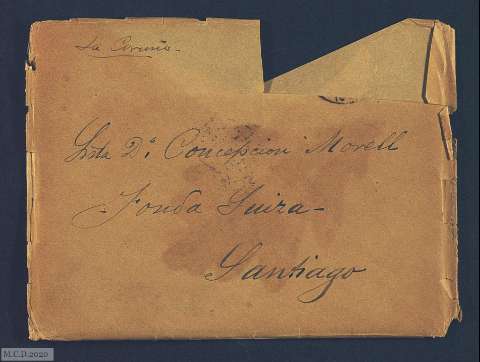 La Coruña.
Srta Dª. Concepcion Morell
Fonda Suiza -
Santiago
M.C.D.2020